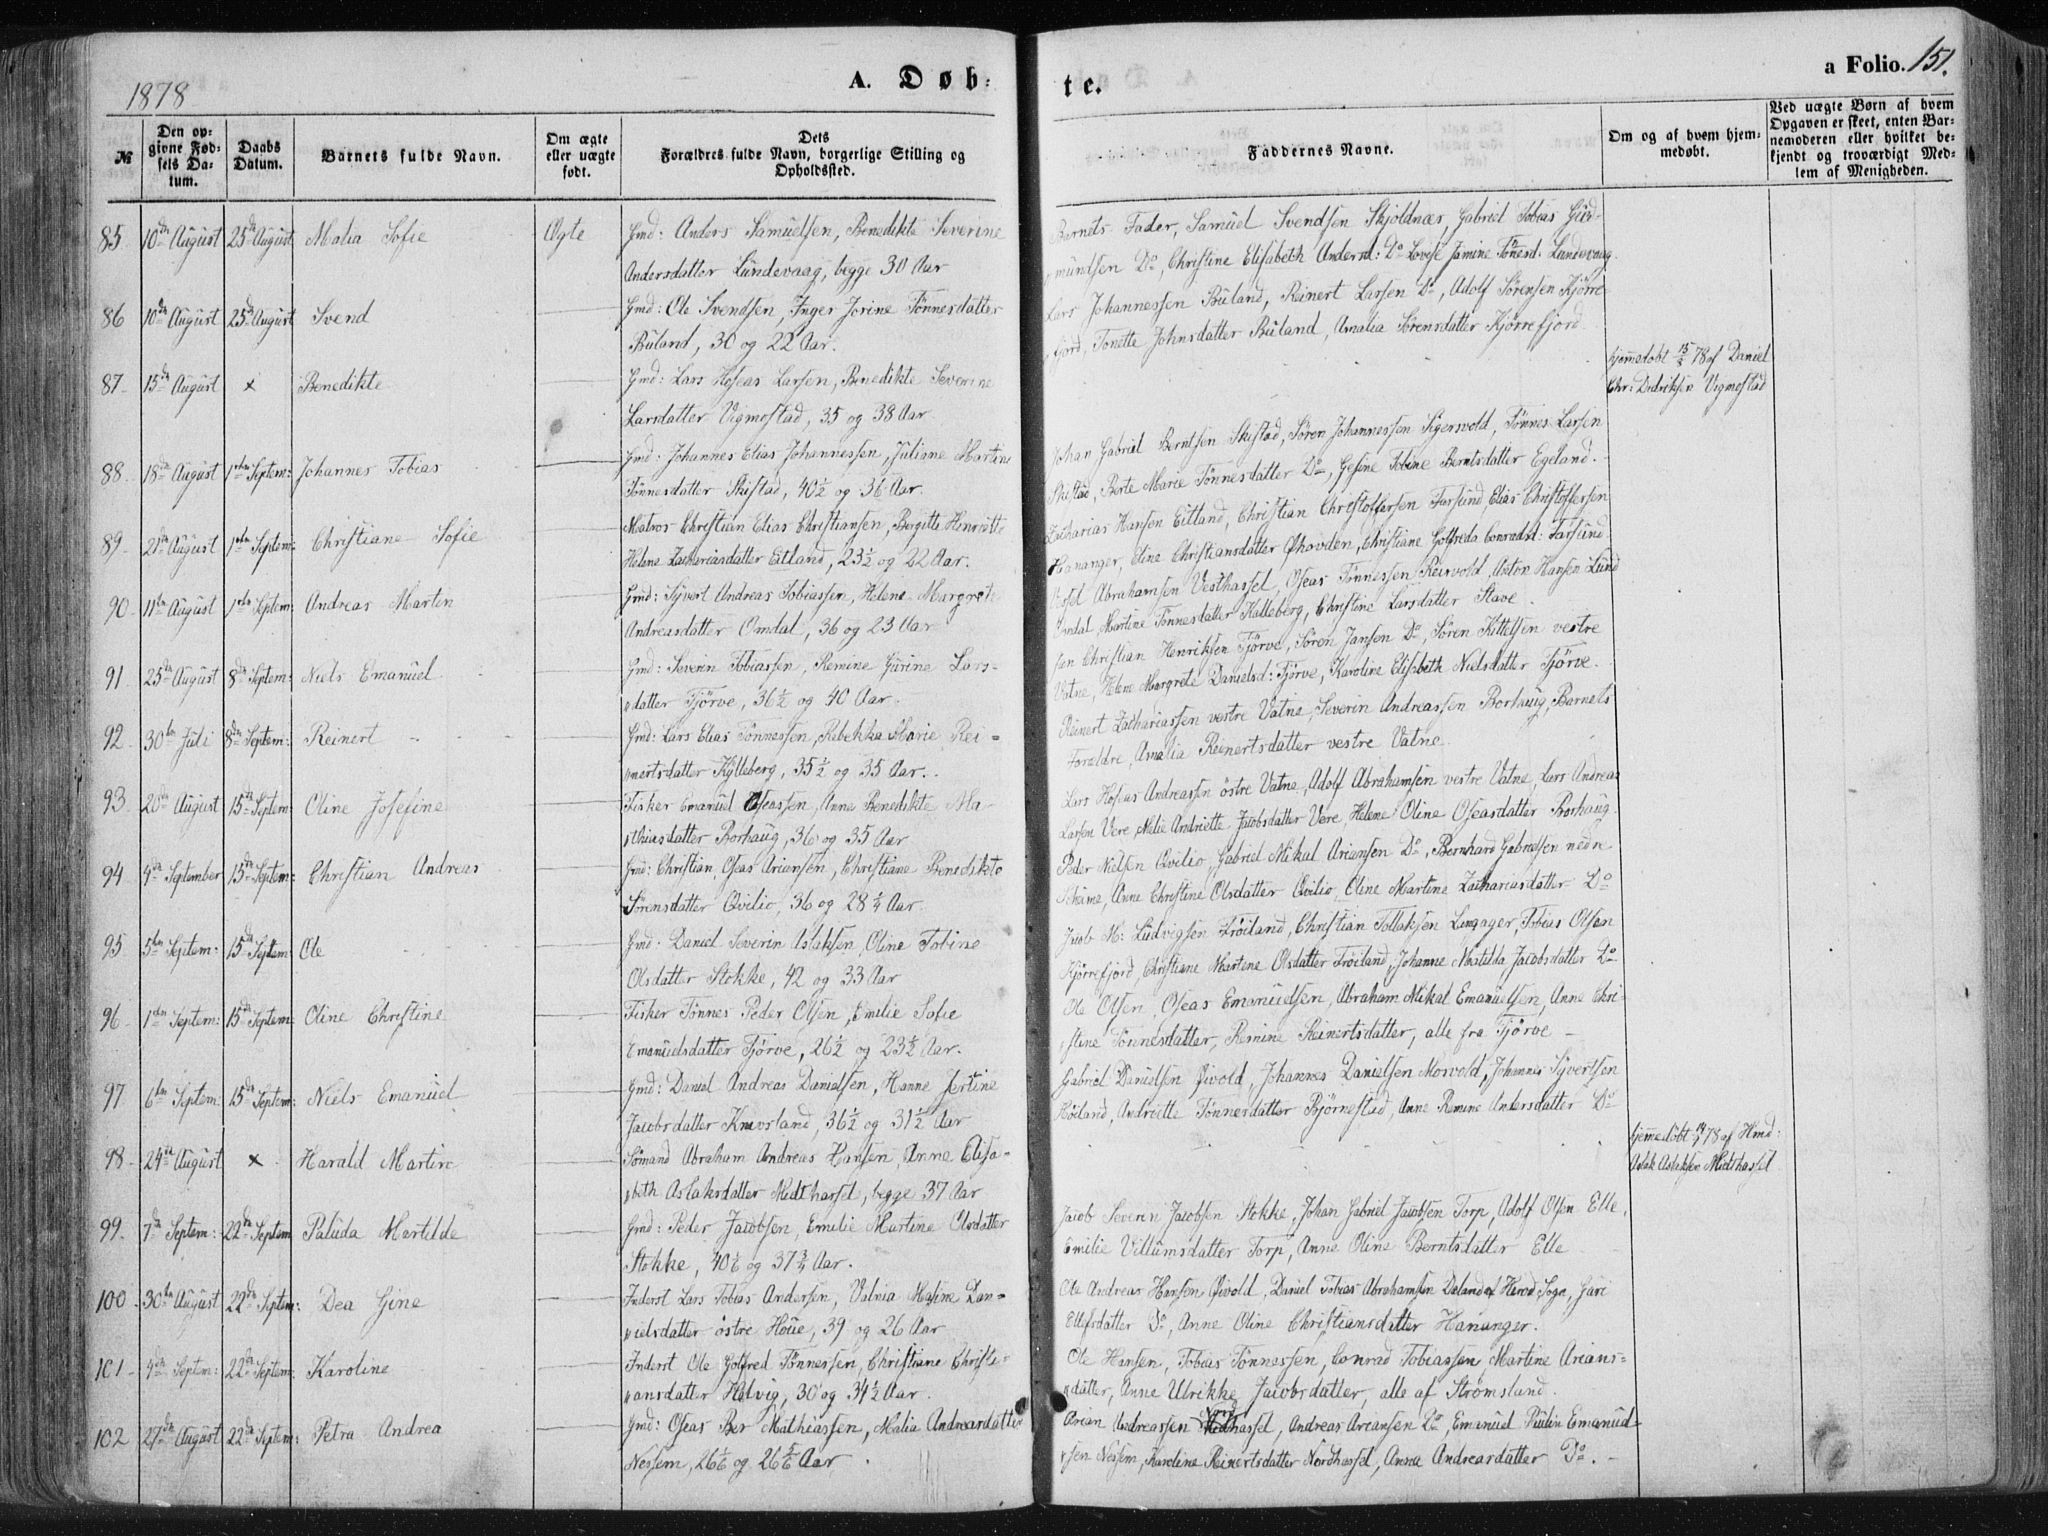 1878
A. Døb=
te.
a Folio. 151.
№
Den op=
givne Fød=
sels Da=
tum.
Daabs
Datum.
Barnets fulde Navn.
Om ægte
eller uægte
født.
Dets
Forældres fulde Navn, borgerlige Stilling og
Opholdssted.
Faddernes Navne.
Om og af hvem hjem=
medøbt.
Ved uægte Børn af hvem
Opgaven er skeet, enten Bar=
nemoderen eller hvilket be=
kjendt og troværdigt Med=
lem af Menigheden.
85 10de August 25de August Malia Sofie Ægte Gmd: Anders Samuelsen, Benedikte Severine
Andersdatter Lundevaag, begge 30 Aar
Barnets Fader, Samuel Svendsen Skjoldnæs, Gabriel Tobias Gud-
mundsen Do, Christine Elisabeth Andersd: Do Lovise Jamine Tönesd. Lundevaag
86 10de August 25de August Svend Gmd: Ole Svendsen, Inger Jorine Tønnesdatter
Buland, 30 og 22 Aar.
Lars Johannessen Buland, Reinert Larsen Do, Adolf Sörensen Kjörre-
fjord, Tonette Johnsdatter Buland, Amalia Sörensdatter Kjörrefjord.
87 15de August x Benedikte Gmd: Lars Hoseas Larsen, Benedikte Severine
Larsdatter Vigmostad, 35 og 38 Aar
hjemedöbt 15/8 78 af Daniel
Chr: Dedriksen Vigmostad
88 18de August 1ste Septem: Johannes Tobias Gmd: Johannes Elias Johannessen, Juliane Martine
Tönnesdatter Skistad, 40½ og 36 Aar.
Johan Gabriel Berntsen Skistad, Sören Johannessen Sigersvold, Tönnes Larsen
Skistad, Berte Marie Tönnesdatter Do, Gesine Tobine Berntsdatter Egeland.
89 21de August 1ste Septem: Christiane Sofie Matros Christian Elias Christiansen, Birgitte Henriette
Helene Zachariasdatter Eitland, 23½ og 22 Aar.
Zacharias Hansen Eitland, Christian Christoffersen Farsund, Elias Christoffersen
Hananger, Eline Christiansdatter Öhovden, Christiane Golfreda Conradsd: Farsund
90 11te August 1ste Septem Andreas Martin Gmd: Sÿvert Andreas Tobiassen, Helene Margrete
Andreasdatter Omdal, 36 og 23 Aar
Abrahamsen Vesthassel, Oseas Tönnessen Reirvold, Anton Hansen Lund
Omdal, Martine Tönnesdatter Kalleberg, Christine Larsdatter Stave
91 25de August 8de Septem: Niels Emanuel Gmd: Severin Tobiassen, Remine Gurine Lars-
datter Tjörve, 36½ og 40 Aar.
Christian Henriksen Tjörve, Sören Jansen Do, Sören Kittelsen vestre
Vatne, Helene Margrete Danielsd: Tjörve, Karoline Elisbeth Nielsdatter Tjörve.
92 30te Juli 8de Septem: Reinert Gmd: Lars Elias Tönnessen, Rebekka Marie Rei-
nertsdatter Kjlleberg, 35½ og 35 Aar.
Reinert Zachariassen vestre Vatne, Severin Andreassen Borhaug, Barnets
Forældre, Amalia Reinertsdatter vestre Vatne
93 20de August 15de Septem: Oline Josefine Fisker Emanuel Oseassen, Anne Benedikte Ma-
thiasdatter Borhaug, 36 og 35 Aar
Lars Hoseas Andreassen östre Vatne, Adolf Abrahamsen vestre Vatne, Lars Andreas
Larsen Vere, Melie Andriette Jacobsdatter Vere Helene Oline Oseasdatter Borhaug
94 4de September 15de Septem: Christian Andreas Gmd: Christian Oseas Ariansen, Christiane Benedikte
Sörensdatter Qvilio, 36 og 28¼ Aar.
Peder Nielsen Qvilio, Gabriel Mikal Ariansen Do, Bernhard Gabrielsen nedn
Skeime, Anne Christine Olsdatter Qvilio, Oline Martine Zachariasdatter Do
95 5te Septem: 15de Septem: Ole Gmd: Daniel Severin Aslaksen, Oline Tobine
Olsdatter Stokke, 42 og 33 Aar
Jacob M: Ludvigsen Fröiland, Christian Tollaksen Lingager, Tobias Olsen
Kjörrefjord, Christiane Martene Olsdatter Fröiland, Johanne Matilda Jacobsdatter Do
96 1ste Septem: 15de Septem: Oline Christine Fisker Tönnes Peder Olsen, Emilie Sofie
Emanuelsdatter Tjörve, 26½ og 23½ Aar.
Ole Olsen, Oseas Emanuelsen, Abraham Mikal Emanuelsen, Anne Chri-
stine Tönnesdatter, Remine Reinertsdatter, alle fra Tjörve
97 6te Septem 15de Septem: Niels Emanuel Gmd: Daniel Andreas Danielsen, Hanne Jertine
Jacobsdatter Knivsland, 36½ og 31½ Aar
Gabriel Danielsen Öivold, Johannes Danielsen Mosvold, Johannes Syvertsen
Höiland, Andriette Tönnesdatter Björnestad, Anne Remine Andersdatter Do
98 24de August x Harald Martin Sömand Abraham Andreas Hansen, Anne Elisa-
beth Aslaksdatter Midthassel, begge 37 Aar
hjemedöbt 78 af Hmd:
Aslak Aslaksen Midthassel
99. 7de Septem: 22de Septem Paluda Martilde Gmd: Peder Jacobsen, Emilie Martine Olsdatter
Stokke, 40 og 37¾ Aar.
Jacob Severin Jacobsen Stokke, Johan Gabriel Jacobsen Torp, Adolf Olsen Elle,
Emilie Villumsdatter Torp, Anne Oline Berntsdatter Elle
100 30te August 22de Septem: Dea Gine Inderst Lars Tobias Andersen, Valnia Masine Dan-
ielsdatter östre Houe, 39 og 26 Aar
Ole Andreas Hansen Öivold, Daniel Tobias Abrahamsen Daland af Herod Sogn, Guri
Ellefsdatter Do, Anne Oline Christiansdatter Hananger.
101 4de Septem: 22de Septem: Karoline Inderst Ole Golfred Tönnessen, Christiane Christi-
ansdatter Helvig, 30 og 34½ Aar.
Ole Hansen, Tobias Tönnessen, Conrad Tobiassen, Martine Arians-
datter, Anne Ulrikke Jacobsdatter, alle af Strömsland.
102 27de August 22de Septem: Petra Andrea Gmd: Oseas Ber Mathiassen, Malia Andreasdatter
Nessem, 26 og 26 Aar
Arian Andreassen Nordhassel, Andreas Ariansen Do, Emanuel Paulin Emanuel-
sen Nessem, Karoline Reinertsdatter Nordhassel, Anna Andreasdatter Do.